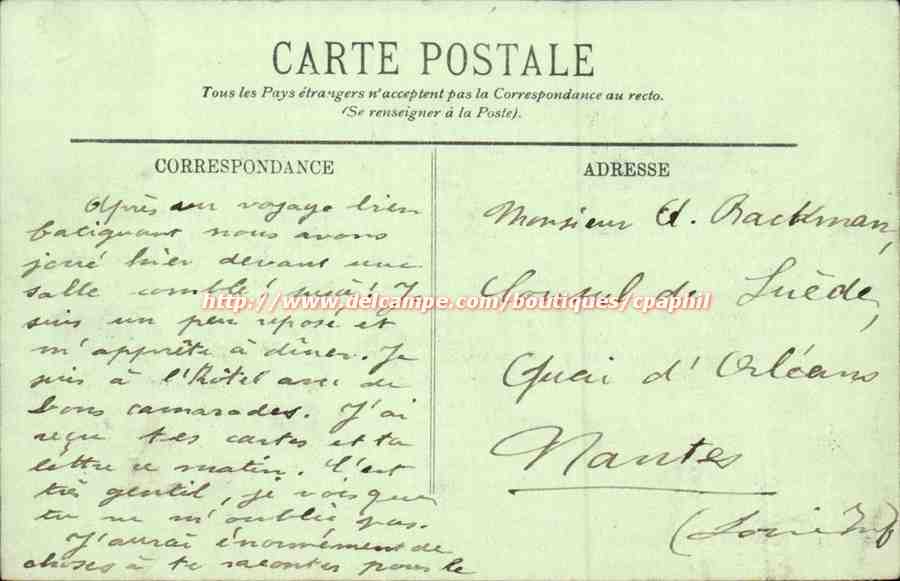 CARTE POSTALE
Tous les Pays étrangers n'acceptent pas la Correspondance au recto.
(Se renseigner à la Poste).
CORRESPONDANCE
Après un voyage bien
fatiguant nous avons
joué hier devant une
salle comble! succès! Je
suis un peu reposé et
m'apprête à dîner. Je
suis à l'hôtel avec de
bons camarades. J'ai
reçu tes cartes et ta
lettre ce matin. C'est
très gentil, je vois que
tu ne m'oublie pas.
J'aurai énormément de
choses à te raconter pour le
ADRESSE
Monsieur A. Backman,
Consul de Suède,
Quai d'Orléans
Nantes
(Loire Inf
http://www.delcampe.com/boutiques/cpaphil